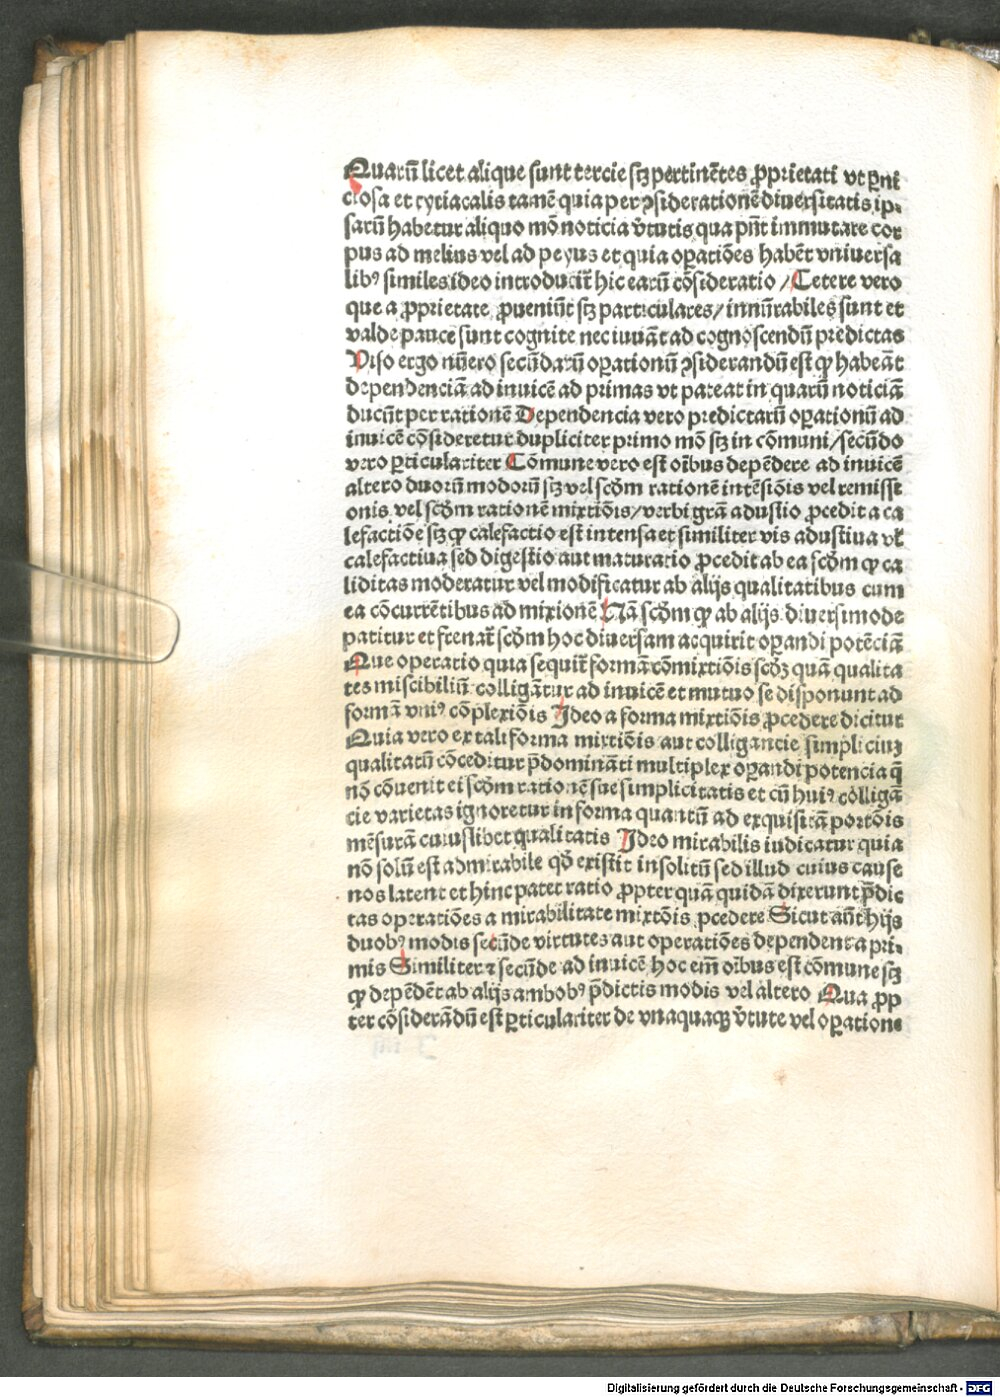 Quarū licet aliqᷓue sunt tercie scꝫ pertinētes ꝓprietati vt ꝑni
ciosa et tyriacalis tamē quia per ꝯsiderationē diuersitatis ip-
sarū habetur aliquo mō noticia v̄tutis qua pn̄t immutare cor
pus ad melius vel ad peyus et quia oꝑatiōes habēt vniuersa
libꝰ similes ideo introducit̄ hic earū cōsideratio / Cetere vero
que a ꝓprietate ꝓueniūt scꝫ particulares / innūrabiles sunt et
valde pauce sunt cognite nec iuuāt ad cognoscendū predictas
Viso ergo nūero secūdarū oꝑationū ꝯsiderandū est ꝙ habeāt
dependenciā ad inuicē ad primas vt pateat in quarū noticiā
ducūt per rationē Dependencia vero predictarū oꝑationū ad
inuicē cōsideretur dupliciter primo mō scꝫ in cōmuni / secūdo
vero ꝑticulariter Cōmune vero est oībus depēdere ad inuicē
altero duorū modorū scꝫ vel scd̄m rationē intēsiōis vel remissi
onis vel scd̄m rationē mixtiōis / verbi grā adustio ꝓcedit a ca
lefactiōe scꝫ ꝙ calefactio est intensa et similiter vis adustiua vl̄
calefactiua sed digestio aut maturatio ꝓcedit ab ea scd̄m ꝙ ca
liditas moderatur vel modificatur ab alijs qualitatibus cum
ea cōcurrētibus ad mixionē Nā scd̄m ꝙ ab alijs diuersimode
patitur et frenat̄ scd̄m hoc diuersam acquirit oꝑandi potēciā
Que operatio quia sequit̄ formā cōmixtiōis scd̄ꝫ quā qualita
tes miscibiliū colligātur ad inuicē et mutuo se disponunt ad
formā vniꝰ cōplexiōis Ideo a forma mixtiōis ꝓcedere dicitur
Quia vero ex tali forma mixtiōis aut colligancie simpliciuꝫ
qualitatū cōceditur p̄domināti multiplex oꝑandi potencia q̄
nō cōuenit ei scd̄m rationē sue simplicitatis et cū huiꝰ colligā
cie varietas ignoretur in forma quantū ad exquisitā portōis
mēsurā cuiuslibet qualitatis Ideo mirabilis iudicatur quia
nō solū est admirabile qd̄ existit insolitū sed illud cuius cause
nos latent et hinc patet ratio ꝓpter quā quidā dixerunt p̄dic
tas operatiōes a mirabilitate mixtōis ꝓcedere Sicut aūt hijs
duobꝰ modis secūde virtutes aut operatiōes dependent a pri-
mis Similiter ⁊ secūde ad inuicē hoc em̄ oībus est cōmune scꝫ
ꝙ depēdēt ab alijs ambobꝰ p̄dictis modis vel altero Qua ꝓp
ter cōsiderādū est ꝑticulariter de vnaquaqꝫ v̄tute vel oꝑatione
Digitalisierung gefördert durch die Deutsche Forschungsgemeinschaft - DFG